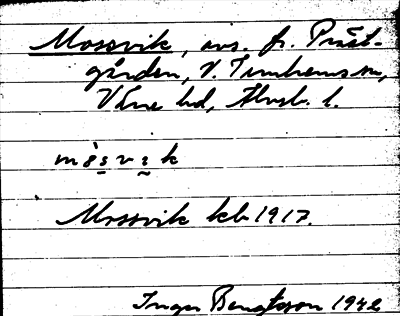 Mossvik, avs. fr. Präst-
gården, V. Tunhems sn,
Väne hd, Älvsb. l.
mò̀s̬vi̬k
Mossvik kb 1917.
Inger Bengtsson 1942